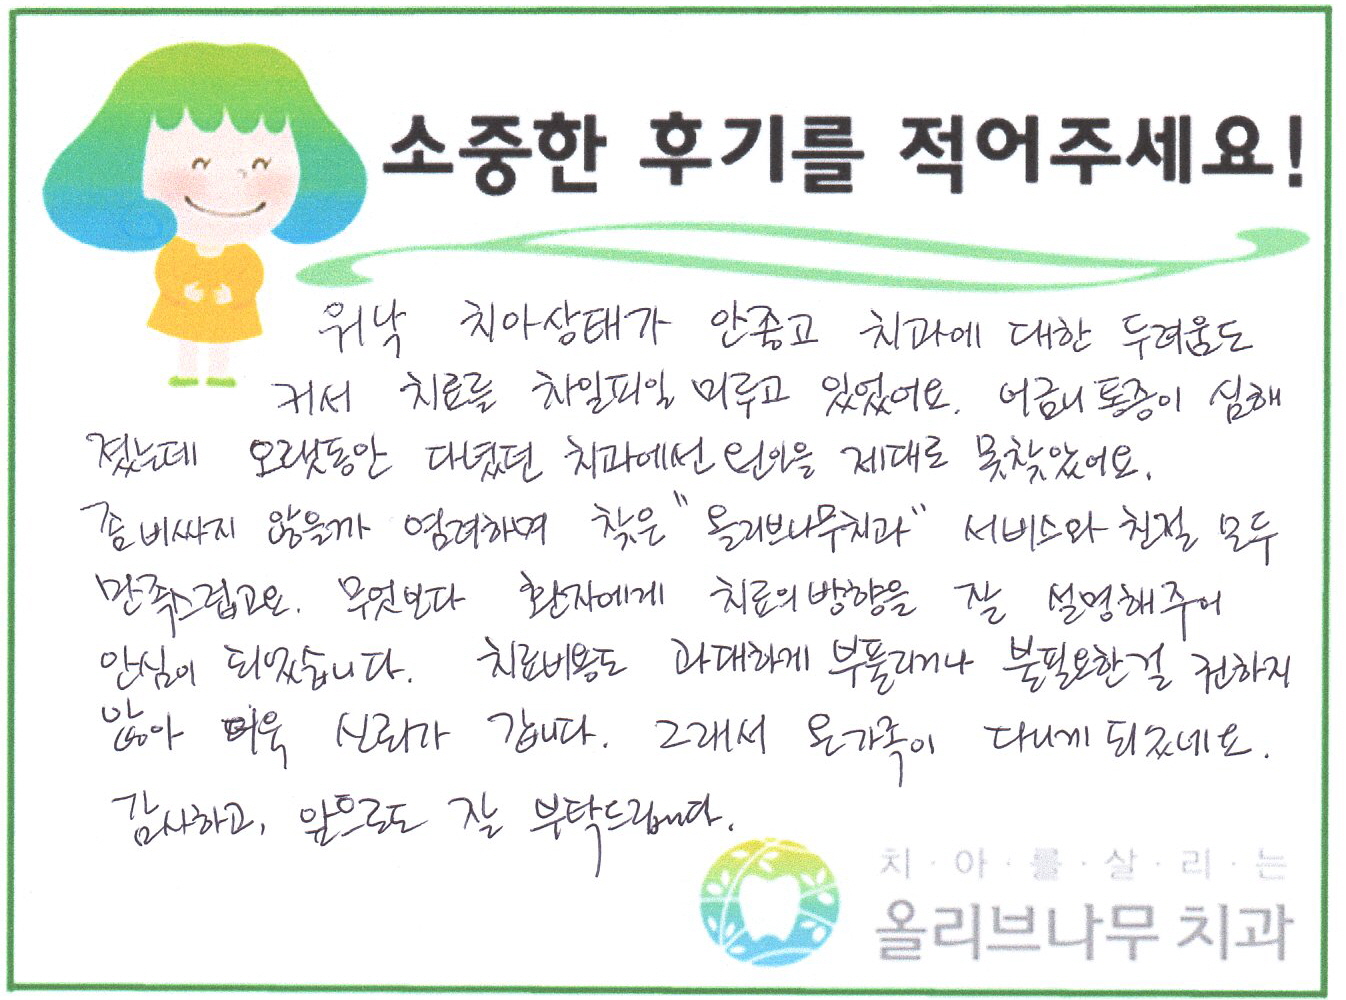 소중한 후기를 적어주세요!
워낙 치아상태가 안좋고 치과에 대한 두려움도
커서 치료를 차일피일 미루고 있었어요. 어금니 통증이 심해
졌는데 오랫동안 다녔던 치과에선 원인을 제대로 못찾았어요.
좀 비싸지 않을까 염려하며 찾은 "올리브나무치과" 서비스와 친절 모두
만족스럽고요. 무엇보다 환자에게 치료의 방향을 잘 설명해주어
안심이 되었습니다. 치료비용도 과대하게 부풀리거나 불필요한걸 권하지
않아 더욱 신뢰가 갑니다. 그래서 온가족이 다니게 되겠네요.
감사하고, 앞으로도 잘 부탁드립니다.
치·아·를·살·리·는
올리브나무 치과